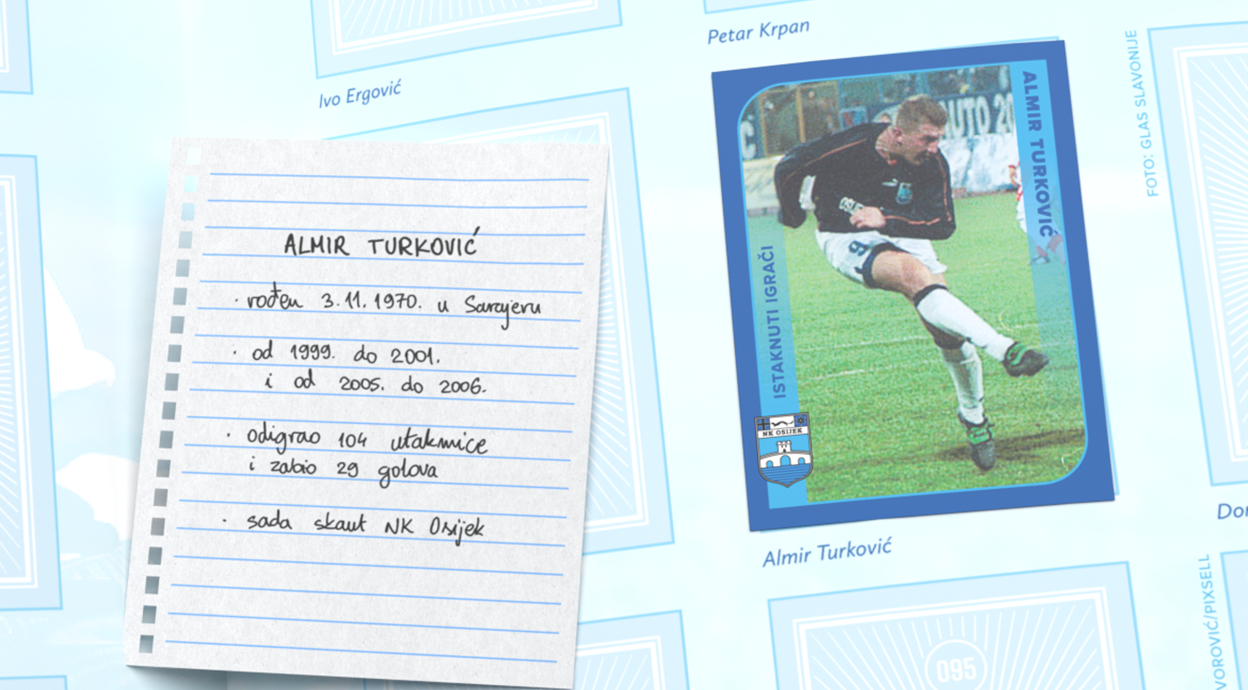 Ivo Ergović
Petar Krpan
FOTO: GLAS SLAVONIJE
ALMIR TURKOVIĆ
· rođen 3.11.1970. u Sarajevu
· od 1999. do 2001.
i od 2005. do 2006.
· odigrao 104 utakmice
i zabio 29 golova
· sada skaut NK Osijek
ALMIR TURKOVIĆ
ISTAKNUTI IGRAČI
AUTO
9
NK OSIJEK
Almir Turković
095
VOROVIĆ/PIXSELL